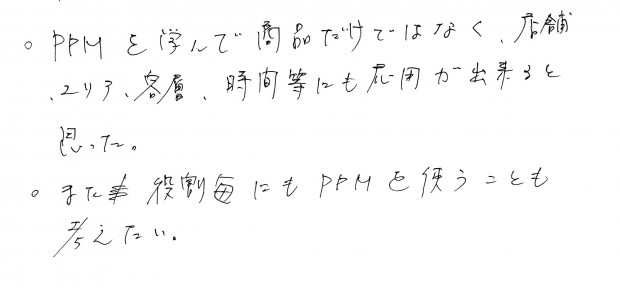 。PPMを学んで商品だけではなく、店舗
、エリア、客層、時間等にも応用が出来ると
思った。
。また 役割毎にもPPMを使うことも
考えたい。